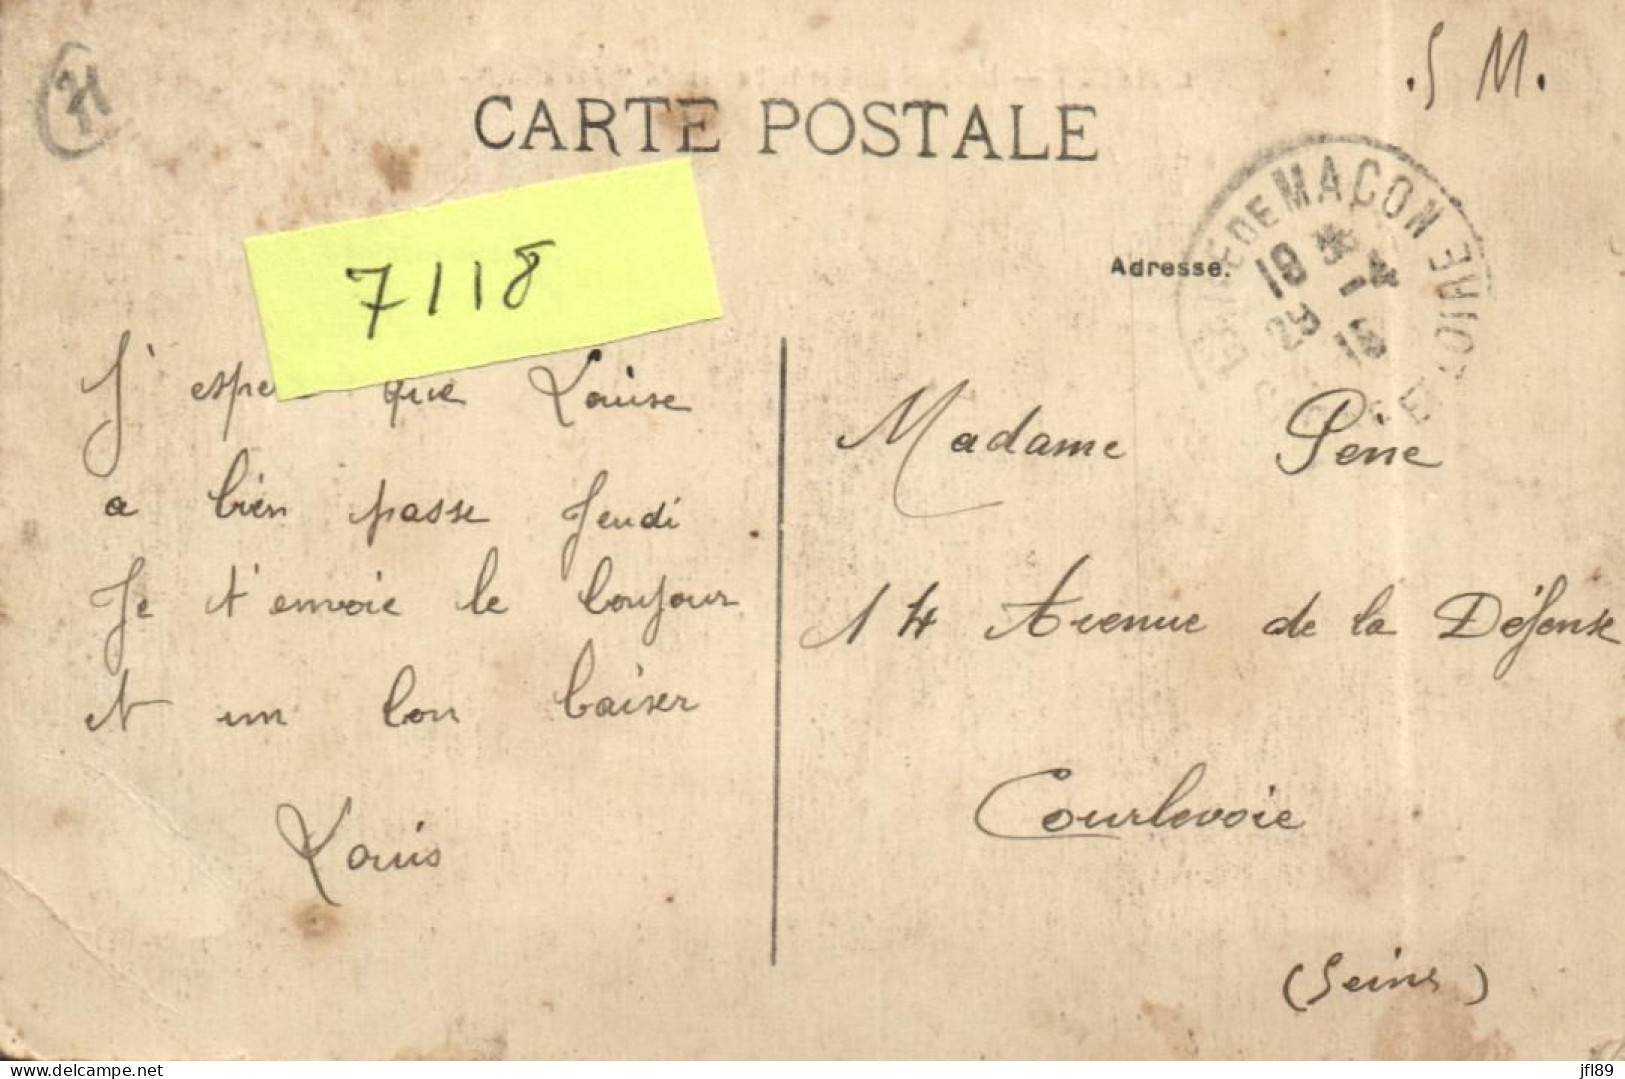 71
S M.
CARTE POSTALE
7118
Adresse.
DE MACON
18 * 
29 -4
15
LOIRE
J' espe que Louise
a bien passe Jeudi
Je t'envoie le bonjour
et un bon baiser
Louis
Madame Pène
14 Avenue de la Défense
Courbevoie
(Seine)
jfl89